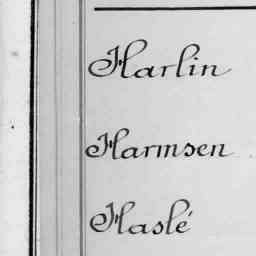 Harlin
Harmsen
Haslé